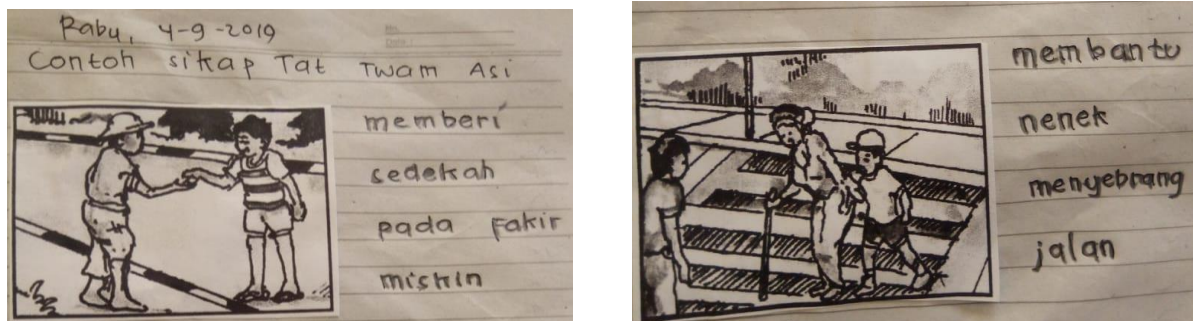 Rabu, 4-9-2019
No.
Date :
Contoh sikap Tat Twam Asi
memberi
sedekah
pada fakir
miskin
membantu
nenek
menyebrang
jalan